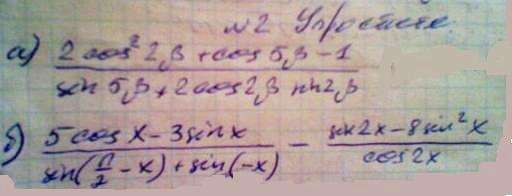 №2 Упростите
а) (2 cos² 2β + cos 5β - 1) / (sin 5β + 2 cos 2β sin 2β)
б) (5 cos x - 3 sin x) / (sin(π/2 - x) + sin(-x)) - (sin 2x - 8 sin² x) / (cos 2x)